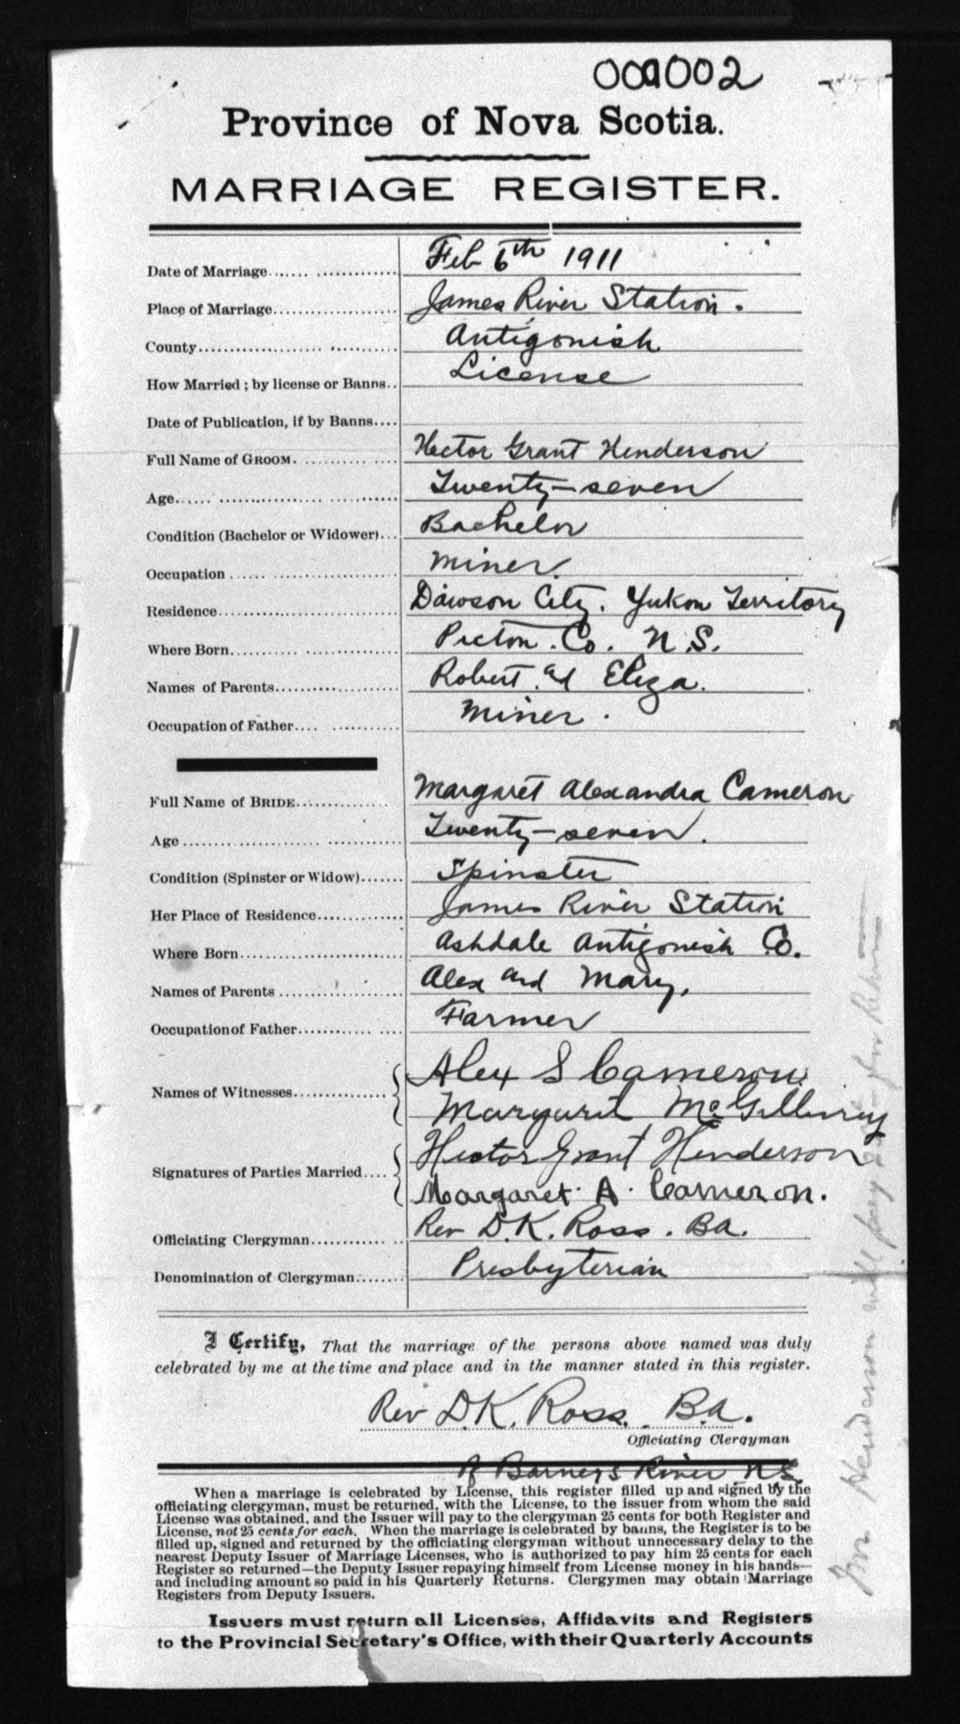 001002
Province of Nova Scotia.
MARRIAGE REGISTER.
Date of Marriage Feb 6th 1911
Place of Marriage James River Station.
County Antigonish
How Married; by license or Banns License
Date of Publication, if by Banns
Full Name of GROOM Hector Grant Henderson
Age Twenty-seven
Condition (Bachelor or Widower) Bachelor
Occupation Miner.
Residence Dawson City. Yukon Territory
Where Born Pictou. Co. N.S.
Names of Parents Robert and Eliza.
Occupation of Father Miner.
Full Name of BRIDE Margaret Alexandra Cameron
Age Twenty-seven.
Condition (Spinster or Widow) Spinster
Her Place of Residence James River Station
Where Born Ashdale Antigonish Co.
Names of Parents Alex and Mary,
Occupation of Father Farmer
Names of Witnesses Alex S Cameron
Margaret McGillivray
Signatures of Parties Married Hector Grant Henderson
Margaret A. Cameron.
Officiating Clergyman Rev D.K. Ross. BA.
Denomination of Clergyman Presbyterian
I Certify, That the marriage of the persons above named was duly
celebrated by me at the time and place and in the manner stated in this register.
Rev D.K. Ross. B.A.
Officiating Clergyman
of Barneys River N.S.
When a marriage is celebrated by License, this register filled up and signed by the
officiating clergyman, must be returned, with the License, to the issuer from whom the said
License was obtained, and the Issuer will pay to the clergyman 25 cents for both Register and
License, not 25 cents for each. When the marriage is celebrated by banns, the Register is to be
filled up, signed and returned by the officiating clergyman without unnecessary delay to the
nearest Deputy Issuer of Marriage Licenses, who is authorized to pay him 25 cents for each
Register so returned—the Deputy Issuer repaying himself from License money in his hands—
and including amount so paid in his Quarterly Returns. Clergymen may obtain Marriage
Registers from Deputy Issuers.
Issuers must return all Licenses, Affidavits and Registers
to the Provincial Secretary's Office, with their Quarterly Accounts
Henderson will pay for Return